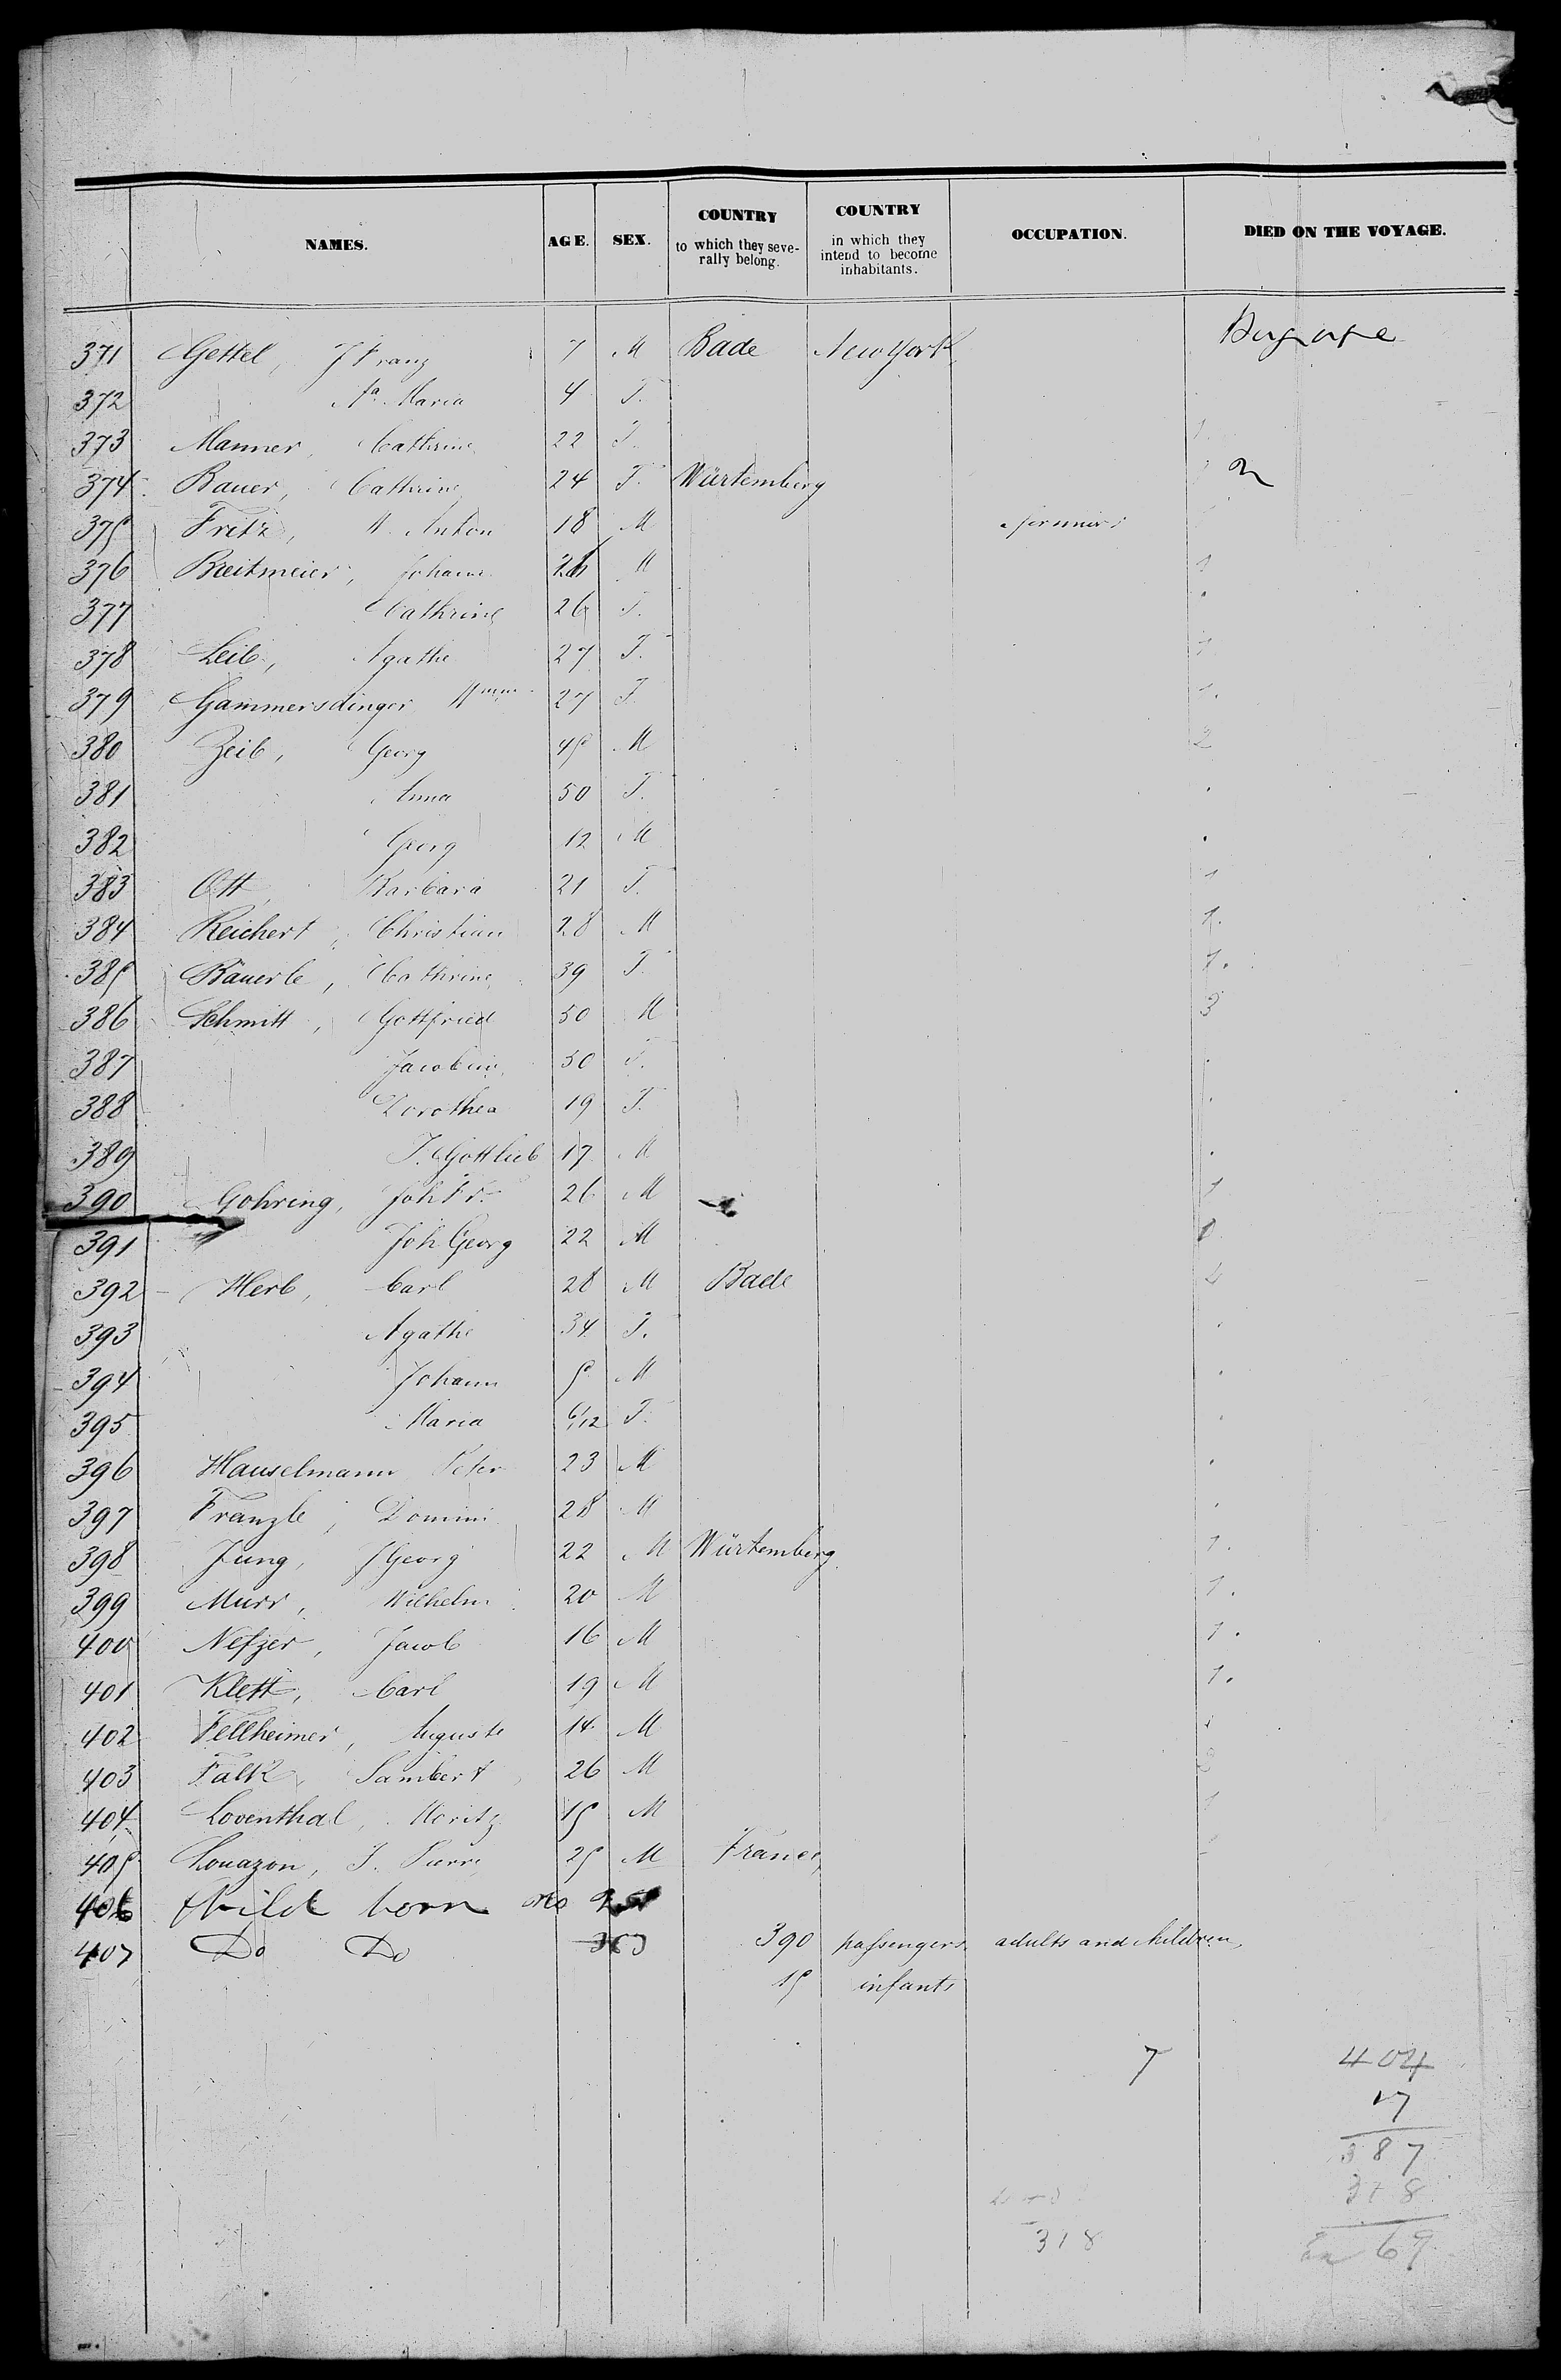 NAMES. AGE. SEX. COUNTRY to which they severally belong. COUNTRY in which they intend to become inhabitants. OCCUPATION. DIED ON THE VOYAGE.
371 Gettel, J Franz 7 M Bade New York
372 Maria 4 F.
373 Manner, Cathrine 22 F. 1
374 Bauer, Cathrine 24 F. Würtemberg 2
375 Fritz, Anton 18 M
376 Breitmeier, Johann 26 M 1
377 Cathrine 26 F.
378 Leib, Agathe 27 F. 1
379 Gammersdinger 27 F. 1.
380 Zeib, Georg 45 M 2
381 Anna 50 F.
382 Georg 12 M
383 Ott, Barbara 21 F. 1
384 Reichert, Christian 28 M 1.
385 Bäuerle, Cathrine 39 F. 1.
386 Schmitt, Gottfried 50 M 3
387 Jacobine 50 F.
388 Dorothea 19 F.
389 J. Gottlieb 17 M
390 Gohring, Joh Fr. 26 M 1
391 Joh Georg 22 M
392 Herb, Carl 28 M Bade
393 Agathe 34 F.
394 Johann 5 M
395 Maria 6/12 F.
396 Hauselmann Peter 23 M
397 Franzle, Domini 28 M
398 Jung, J Georg 22 M Würtemberg 1.
399 Murr, Wilhelm 20 M 1.
400 Nefzer, Jacob 16 M 1.
401 Klett, Carl 19 M 1.
402 Fellheimer, Auguste 14 M
403 Falk, Lambert 26 M
404 Loventhal, Moritz 15 M 1
405 Louazon, J. Pierre 25 M France
406 Child born
407 Do Do 390 passengers adults and children,
15 infants
7 404
17
387
318
318 69